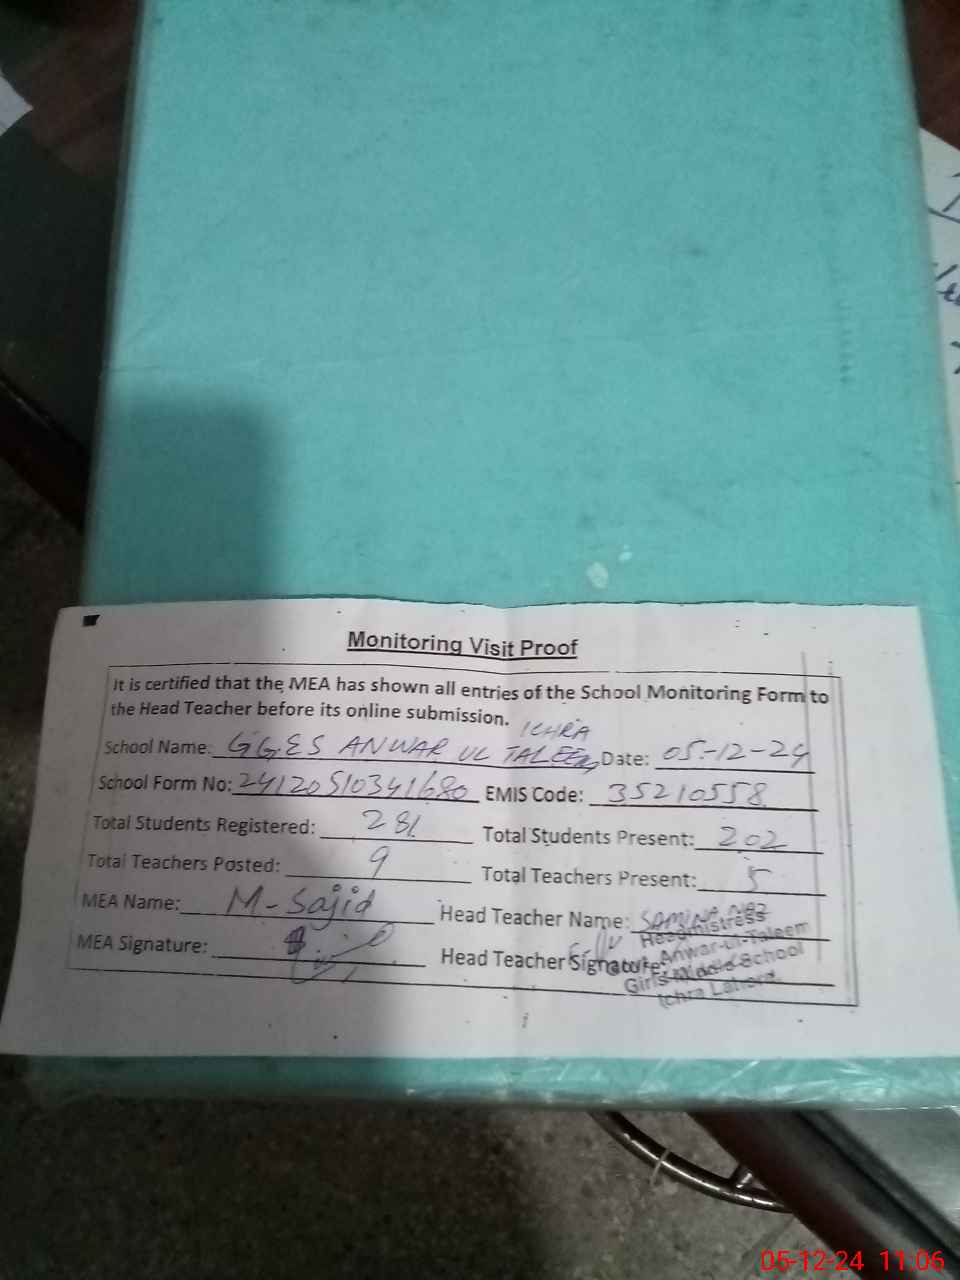 Monitoring Visit Proof
It is certified that the MEA has shown all entries of the School Monitoring Form to
the Head Teacher before its online submission.
ICHRA
School Name: GGES ANWAR UL TALEEM Date: 05-12-24
School Form No: 24120510341680 EMIS Code: 35210558
Total Students Registered: 281 Total Students Present: 202
Total Teachers Posted: 9 Total Teachers Present: 5
MEA Name: M-Sajid Head Teacher Name: SAMINA NAZ
Headmistress
MEA Signature: Head Teacher Signature:
Anwar-ul-Taleem
Girls Middle School
Ichra Lahore.
05-12-24 11:06